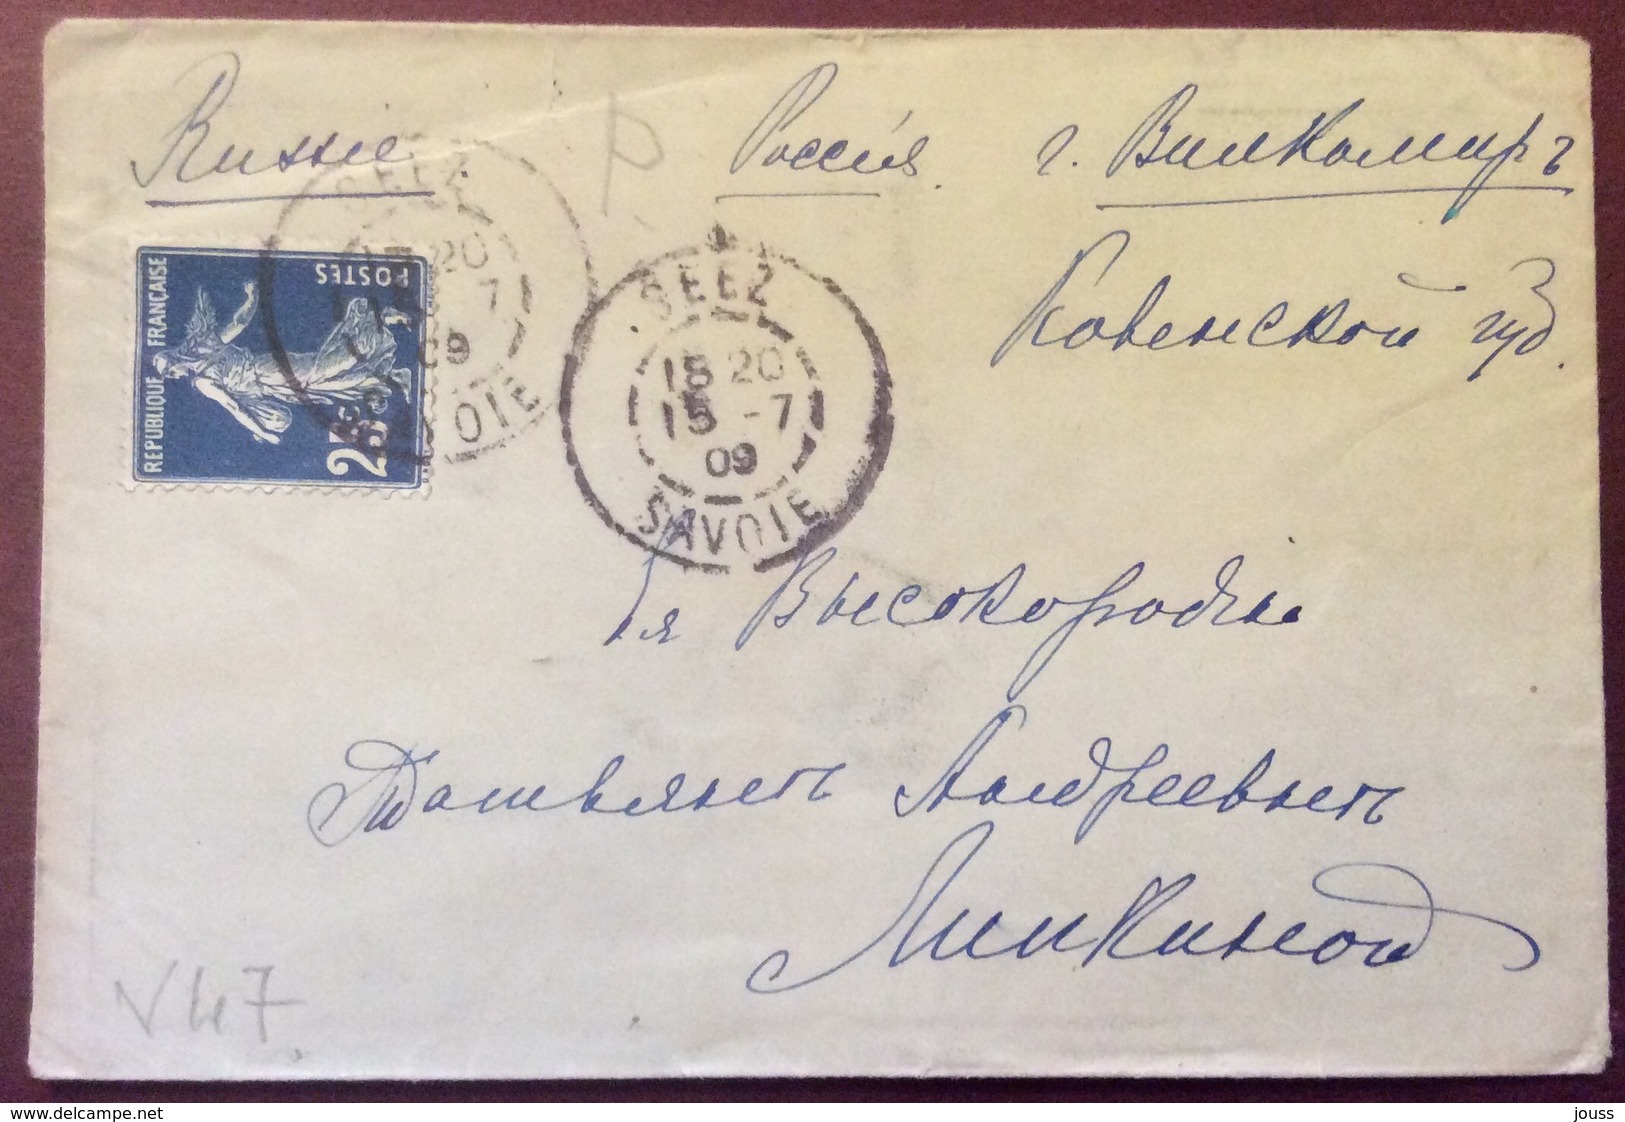 Russie
Россія. г. Вилкомиръ
Ковенской губ.
REPUBLIQUE FRANÇAISE
POSTES
25
SEEZ
18 20
15 -7
09
SAVOIE
SEEZ
20
7
09
SAVOIE
Ея Высокородію
Андреевнѣ
V47
delcampe.net
jouss